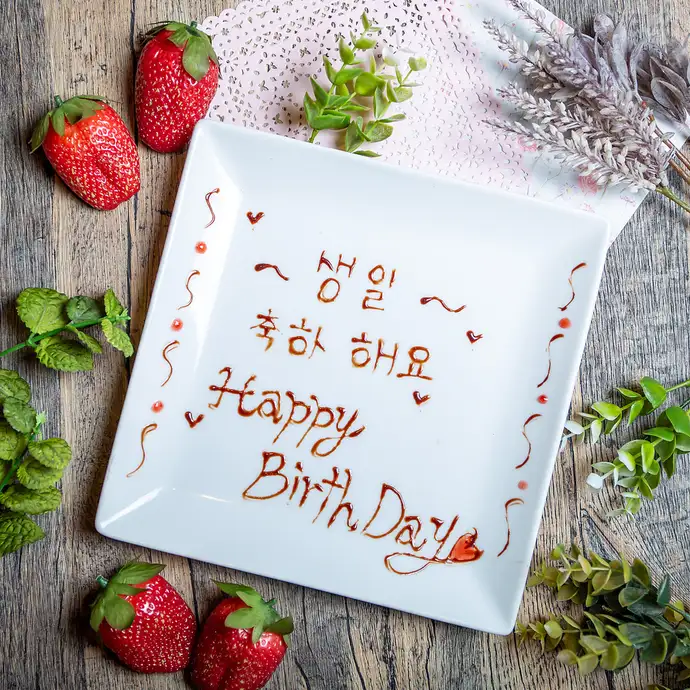 ~ 생일 ~
축하 해요
Happy
Birth Day